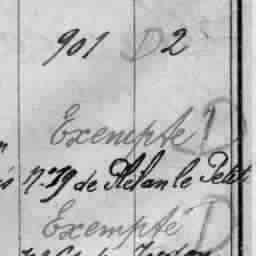 901 D 2
Exempté D
n.79 de St Alan le Petit
Exempté D